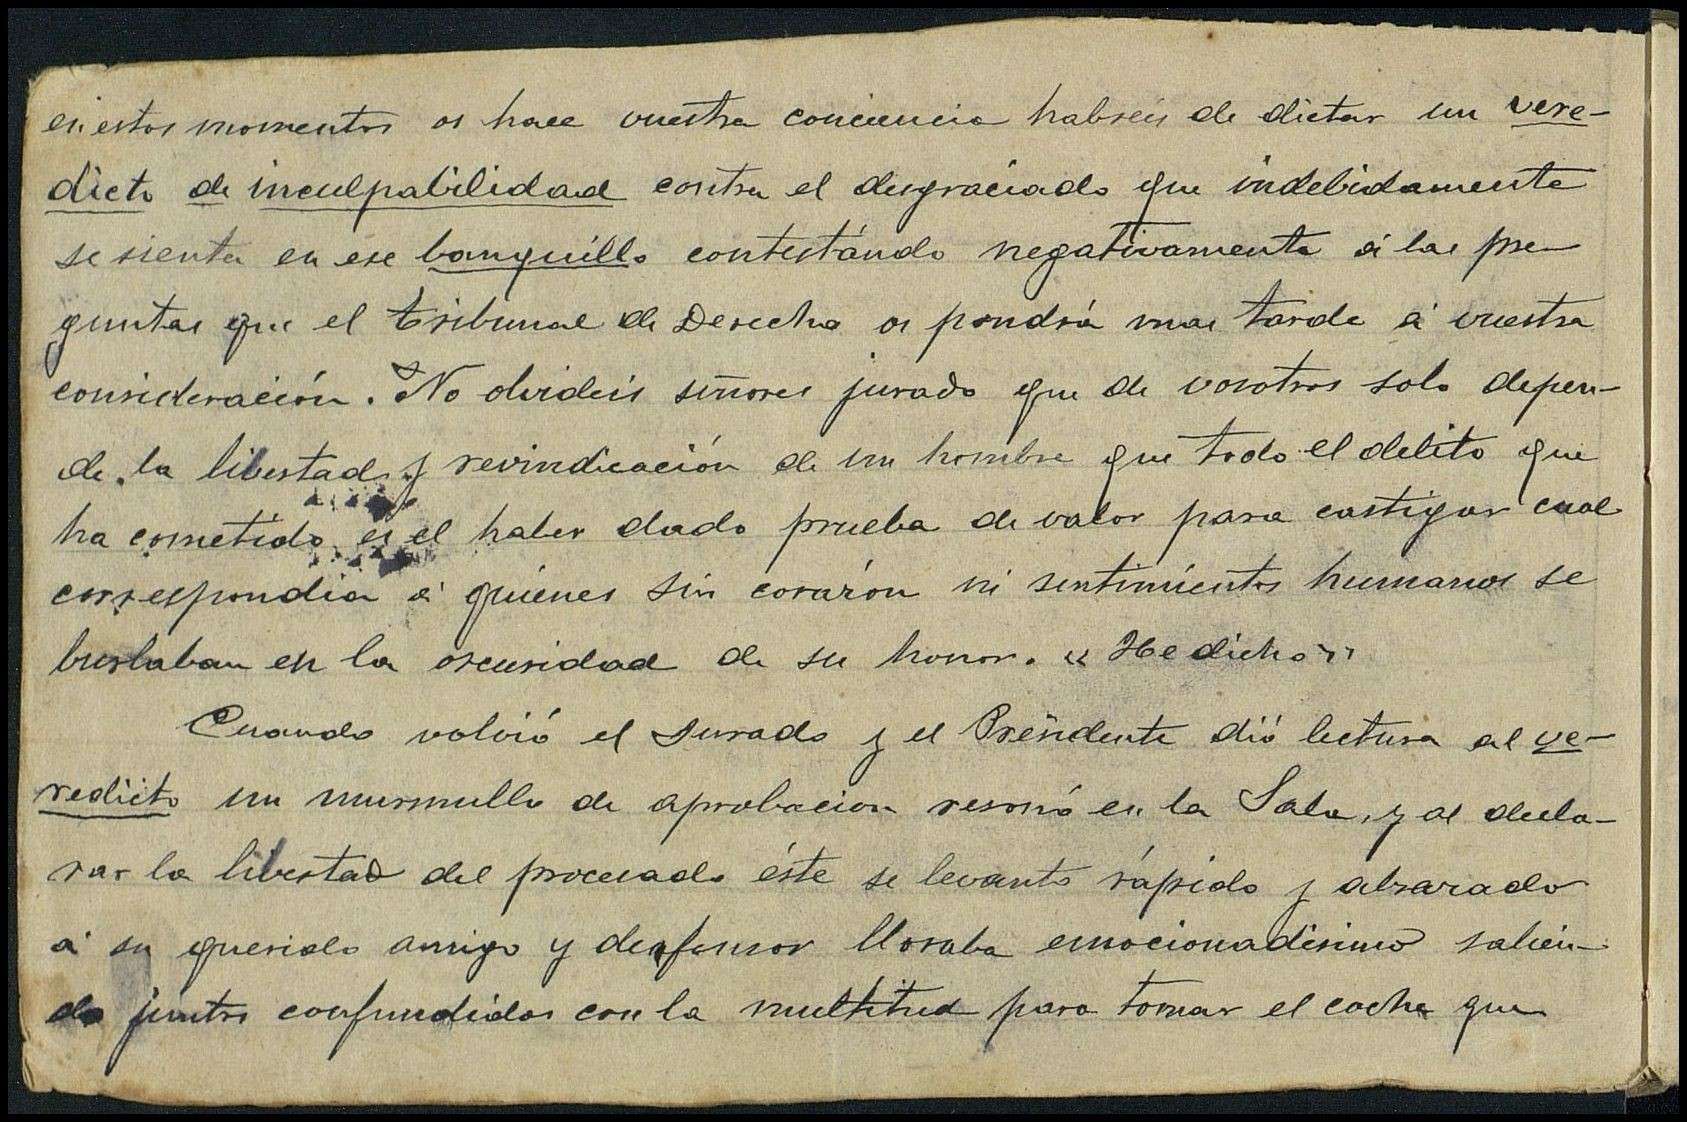 en estos momentos os hace vuestra conciencia habreis de dictar un vere-
dicto de inculpabilidad contra el desgraciado que indebidamente
se sienta en ese banquillo contestándo negativamente á las pre
guntas que el tribunal de Derecho os pondrá mas tarde á vuestra
consideración. No olvideis señores jurado que de vosotros solo depen-
de la libertad y revindicación de un hombre que todo el delito que
ha cometido es el haber dado prueba de valor para castigar cual
correspondia á quienes sin corazón ni sentimientos humanos se
burlaban en la oscuridad de su honor. "He dicho"
Cuando volvió el Jurado y el Presidente dió lectura al ve-
redicto un murmullo de aprobacion resonó en la Sala, y al decla-
rar la libertad del procesado éste se levanto rápido y abrazado
á su querido amigo y defensor lloraba emocionadisimo salien-
do juntos confundidos con la multitud para tomar el coche que